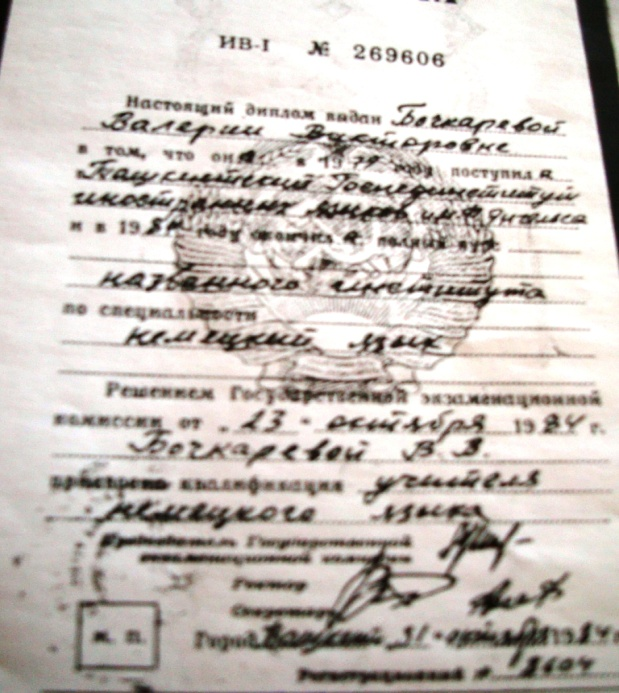 ИВ-I № 269606
Настоящий диплом выдан Бочкаревой
Валерии Викторовне
в том, что она в 1979 году поступила
в Ташкентский Госпединститут
иностранных языков им. Ф. Энгельса
и в 1984 году окончила полный курс
названного института
по специальности
немецкий язык
Решением Государственной экзаменационной
комиссии от „23" октября 1984 г.
Бочкаревой В. В.
присвоена квалификация учителя
немецкого языка
Председатель Государственной
экзаменационной комиссии
Ректор
Секретарь
М. П.
Город 31 октября 1984 г.
Регистрационный №